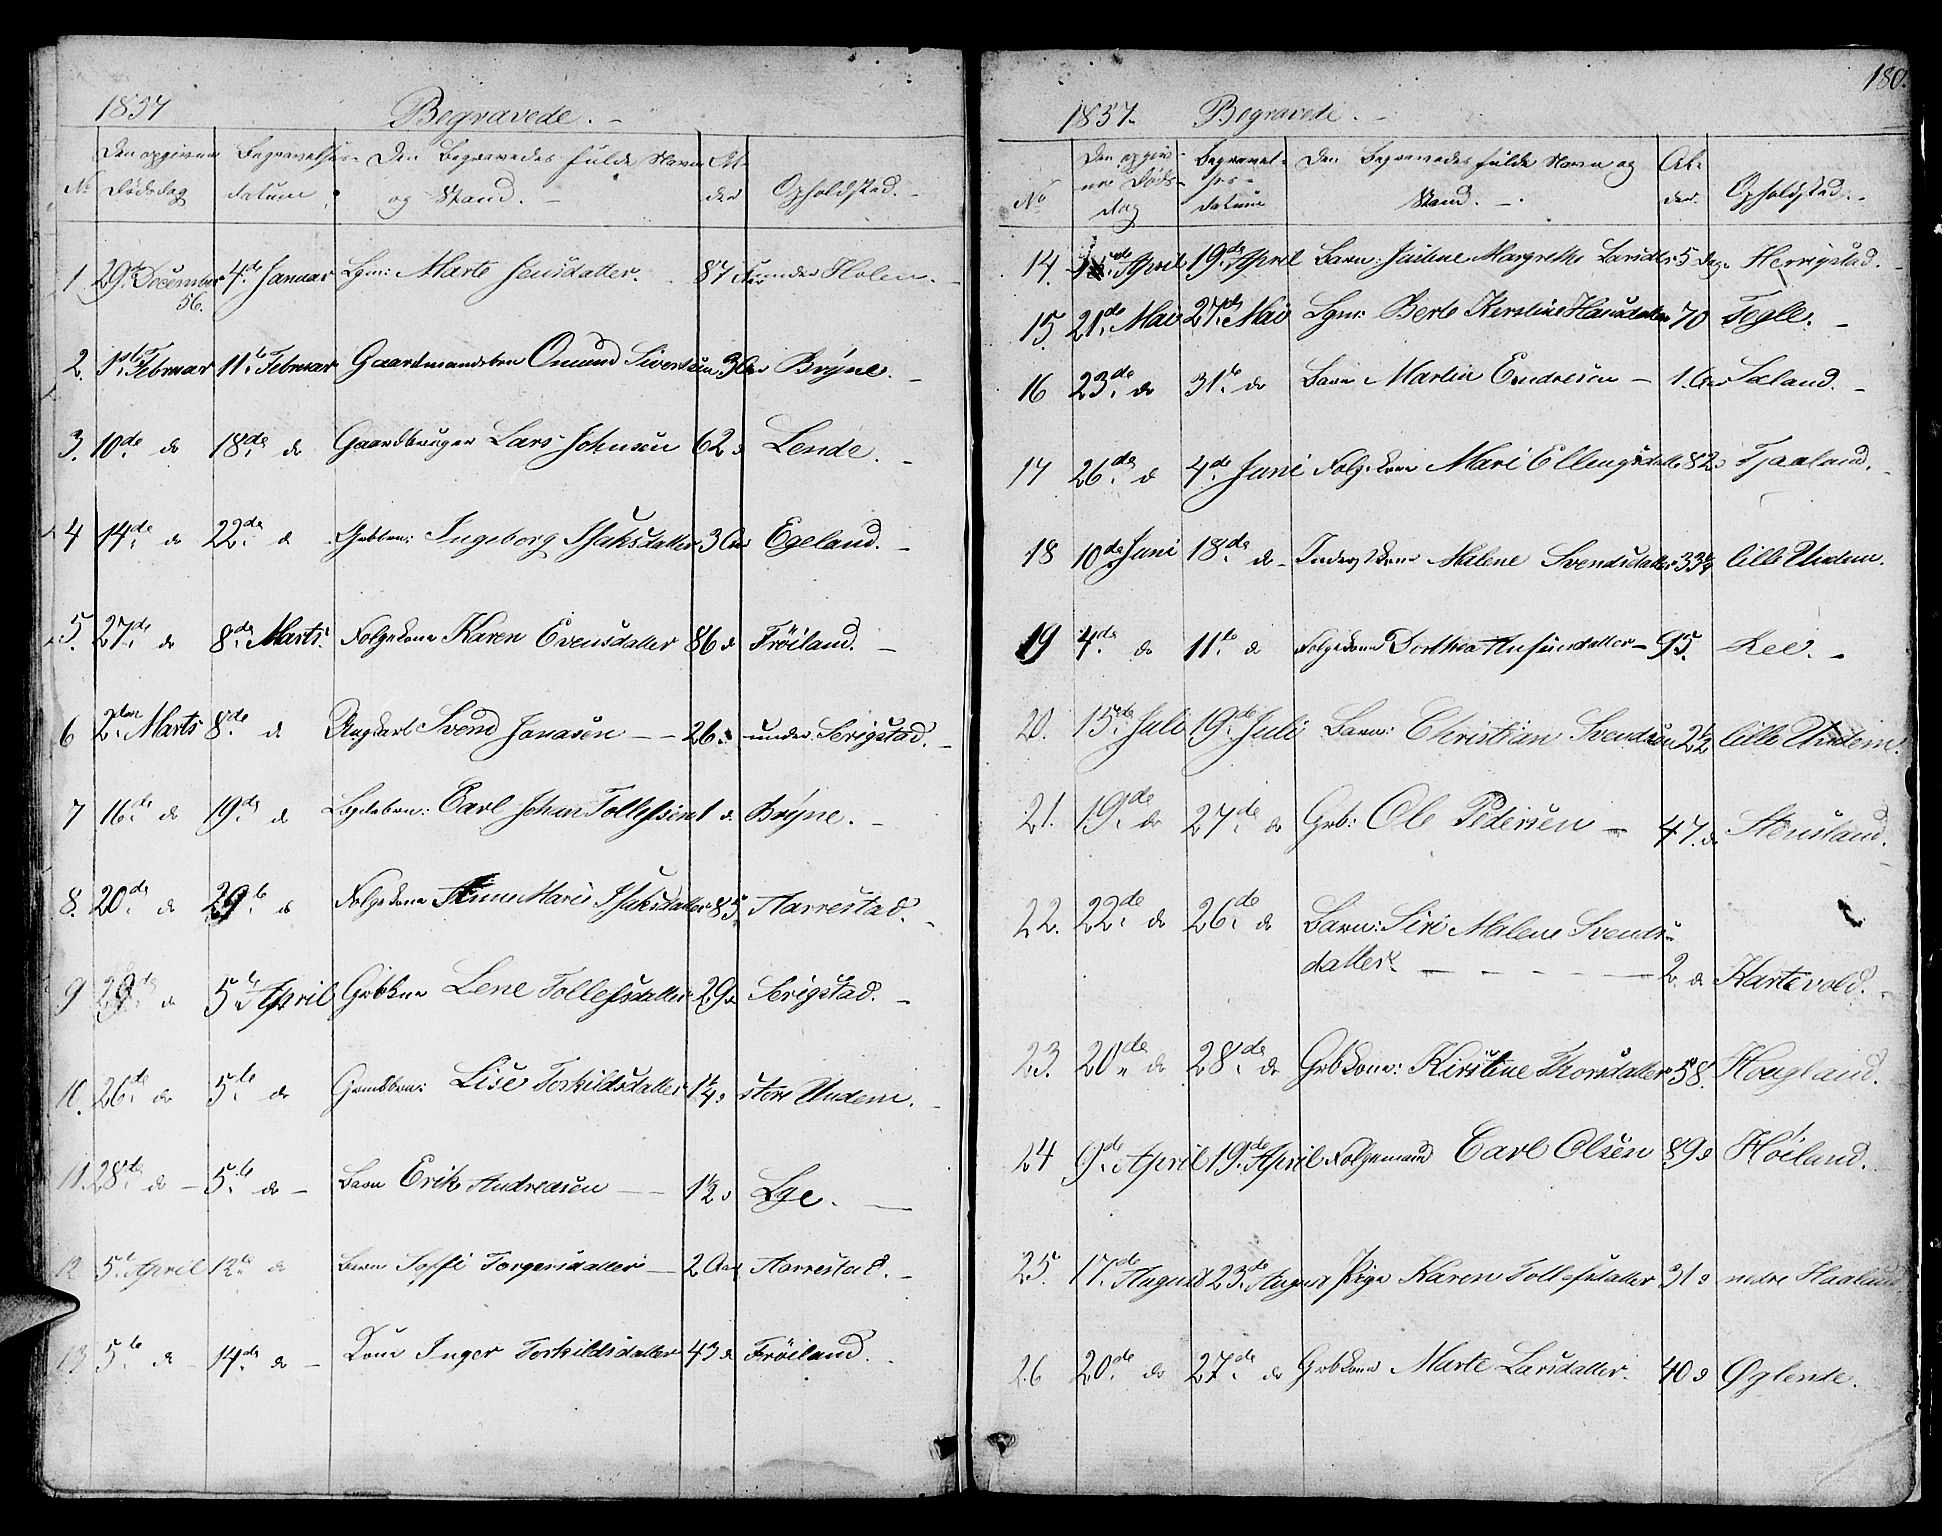 1857 Begravede. -
No Den opgivne Dødsdag Begravelses- datum. Den Begravedes fulde Navn og Stand. - Al- der Opholdsted. -
1. 29de December 56. 4de Januar Lgm: Marte Jensdatter. 87 Aar under Holen. -
2. 1ste Februar 11te Februar Gaardmandsbrn Omund Sivertsen 3 Aar Bryne. -
3. 10de do 18de do Gaardbruger Lars Johnsen 62 d Lende. -
4 14de do 22de d Grbbrn: Ingeborg Isaksdatter 3 Aar Egeland. -
5. 27de do 8de Marts. Folgekone Karen Evensdatter 86 d Frøiland. -
6 2den Marts 8de d Ungkarl Svend Jonasen - - 26 d under Serigstad. -
7 16de do 19de do Lgdebrn: Carl Johan Tollefsen 1 d. Bryne. -
8. 20de do 29te do Folgekone Anne Marie Isaksdatter 85. Aarrestad. -
9 29de d 5te April Grbkne Lene Tollefsdatter 29 d Serigstad. -
10. 26de do 5te do Grmdbrn: Lise Torkildsdatter 1/4 d store Undem. -
11. 28de do - 5te do - Barn Erik Andreasen - - 1/2 d Lye. -
12 5te April 12te d Barn Soffi Torgersdatter - 2 Aar Aarrestad. -
13 5te d - 14de do - Kone Inger Torkildsdatter 43 d Frøiland. -
180.
1857. Begravede. -
No Den opgiv- ne Døds- dag Begravel- ses- datum Den Begravedes fulde Navn og Stand. - Al- der. Opholdsted. -
14. April 19de April Barn: Justine Margrethe Larsdtr 5 Dage Herrigstad. -
15. 21de Mai 27de Mai Lgm: Berte Kirstine Hansdatter 70 Fogle. -
16 23de do 31te do Barn Martin Endresen - 1. Aar Sæland. -
17 26de d 4de Juni Folgekone Mari Ellingsdatter 82 d Tjaaland. -
18 10de Juni 18de do - Inderstkone Malene Svendsdatter 33 1/2 lille Undem.
19 4de do 11te do Folgekone Dorthea Ansteensdatter - 95. Lee. -
20. 15de Juli 19de Juli Barn: Christian Svendsen 2 1/2 lille Undem.
21. 19de do 27de do Grb: Ole Pedersen - 47. do Stensland.
22. 22de do 26de do Barn: Siri Malene Svends-
datter. - - - - - 2. do Kartevold. -
23. 20de do 28de do Grbkone: Kirstine Thorsdatter 58. Hougland.
24 9de April 19de April Folgemand Carl Olsen 89 d Høiland.
25. 17de August 23de August Pige Karen Tollefsdatter 31 d nedre Haaland
26 20de do 27de do Grbkone Marte Larsdatter. 40 d Øglende.